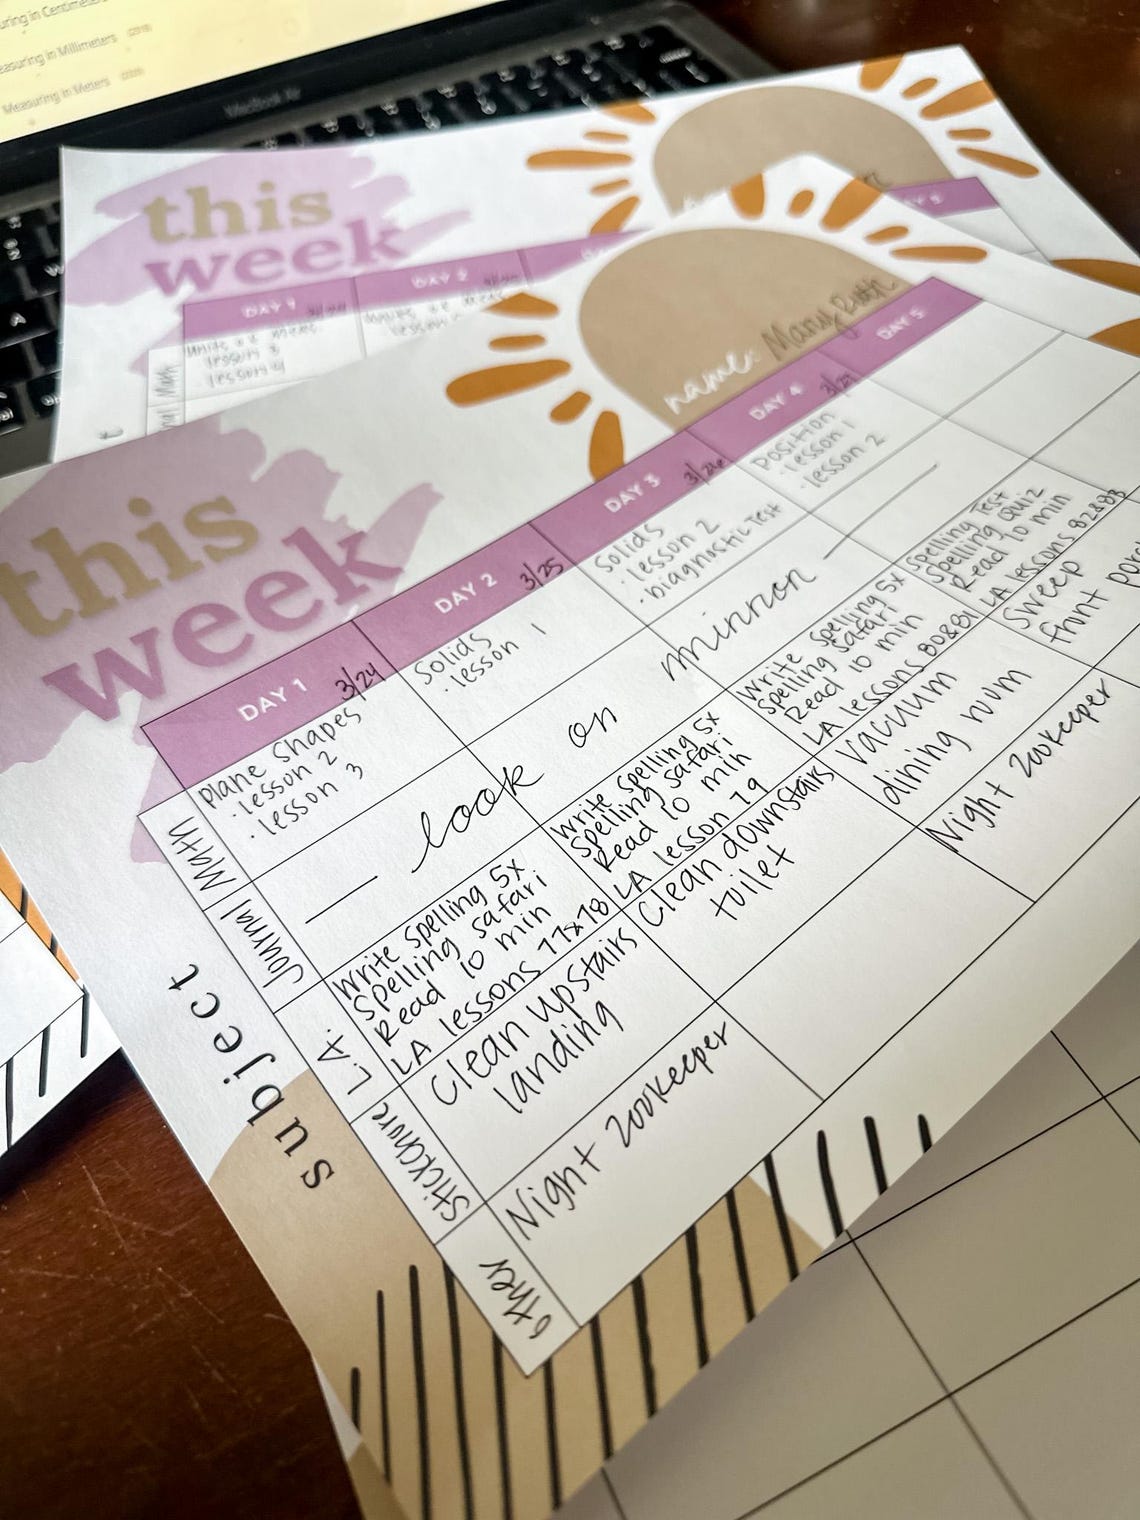 Measuring in Millimeters
Measuring in Meters
MacBook Air
this
week
DAY 1
DAY 2
lesson 3
lesson 4
Math
this
week
name: Mary Ruth
DAY 1 3/24
DAY 2 3/25
DAY 3 3/26
DAY 4 3/27
DAY 5
subject
Math
Plane Shapes
· lesson 2
· lesson 3
Solids
· lesson 1
Solids
· lesson 2
· Diagnostic Test
Position
· lesson 1
· lesson 2
Journal
look on mirror
L.A.
Write Spelling 5x
Spelling Safari
Read 10 min
LA lessons 77+78
Write Spelling 5x
Spelling Safari
Read 10 min
LA lesson 79
Write Spelling 5x
Spelling Safari
Read 10 min
LA lessons 80&81
Spelling Test
Spelling Quiz
Read 10 min
LA lessons 82&83
Stickchure
Clean upstairs
landing
Clean downstairs
toilet
Vacuum
dining room
Sweep
front
other
Night Zookeeper
Night Zookeeper